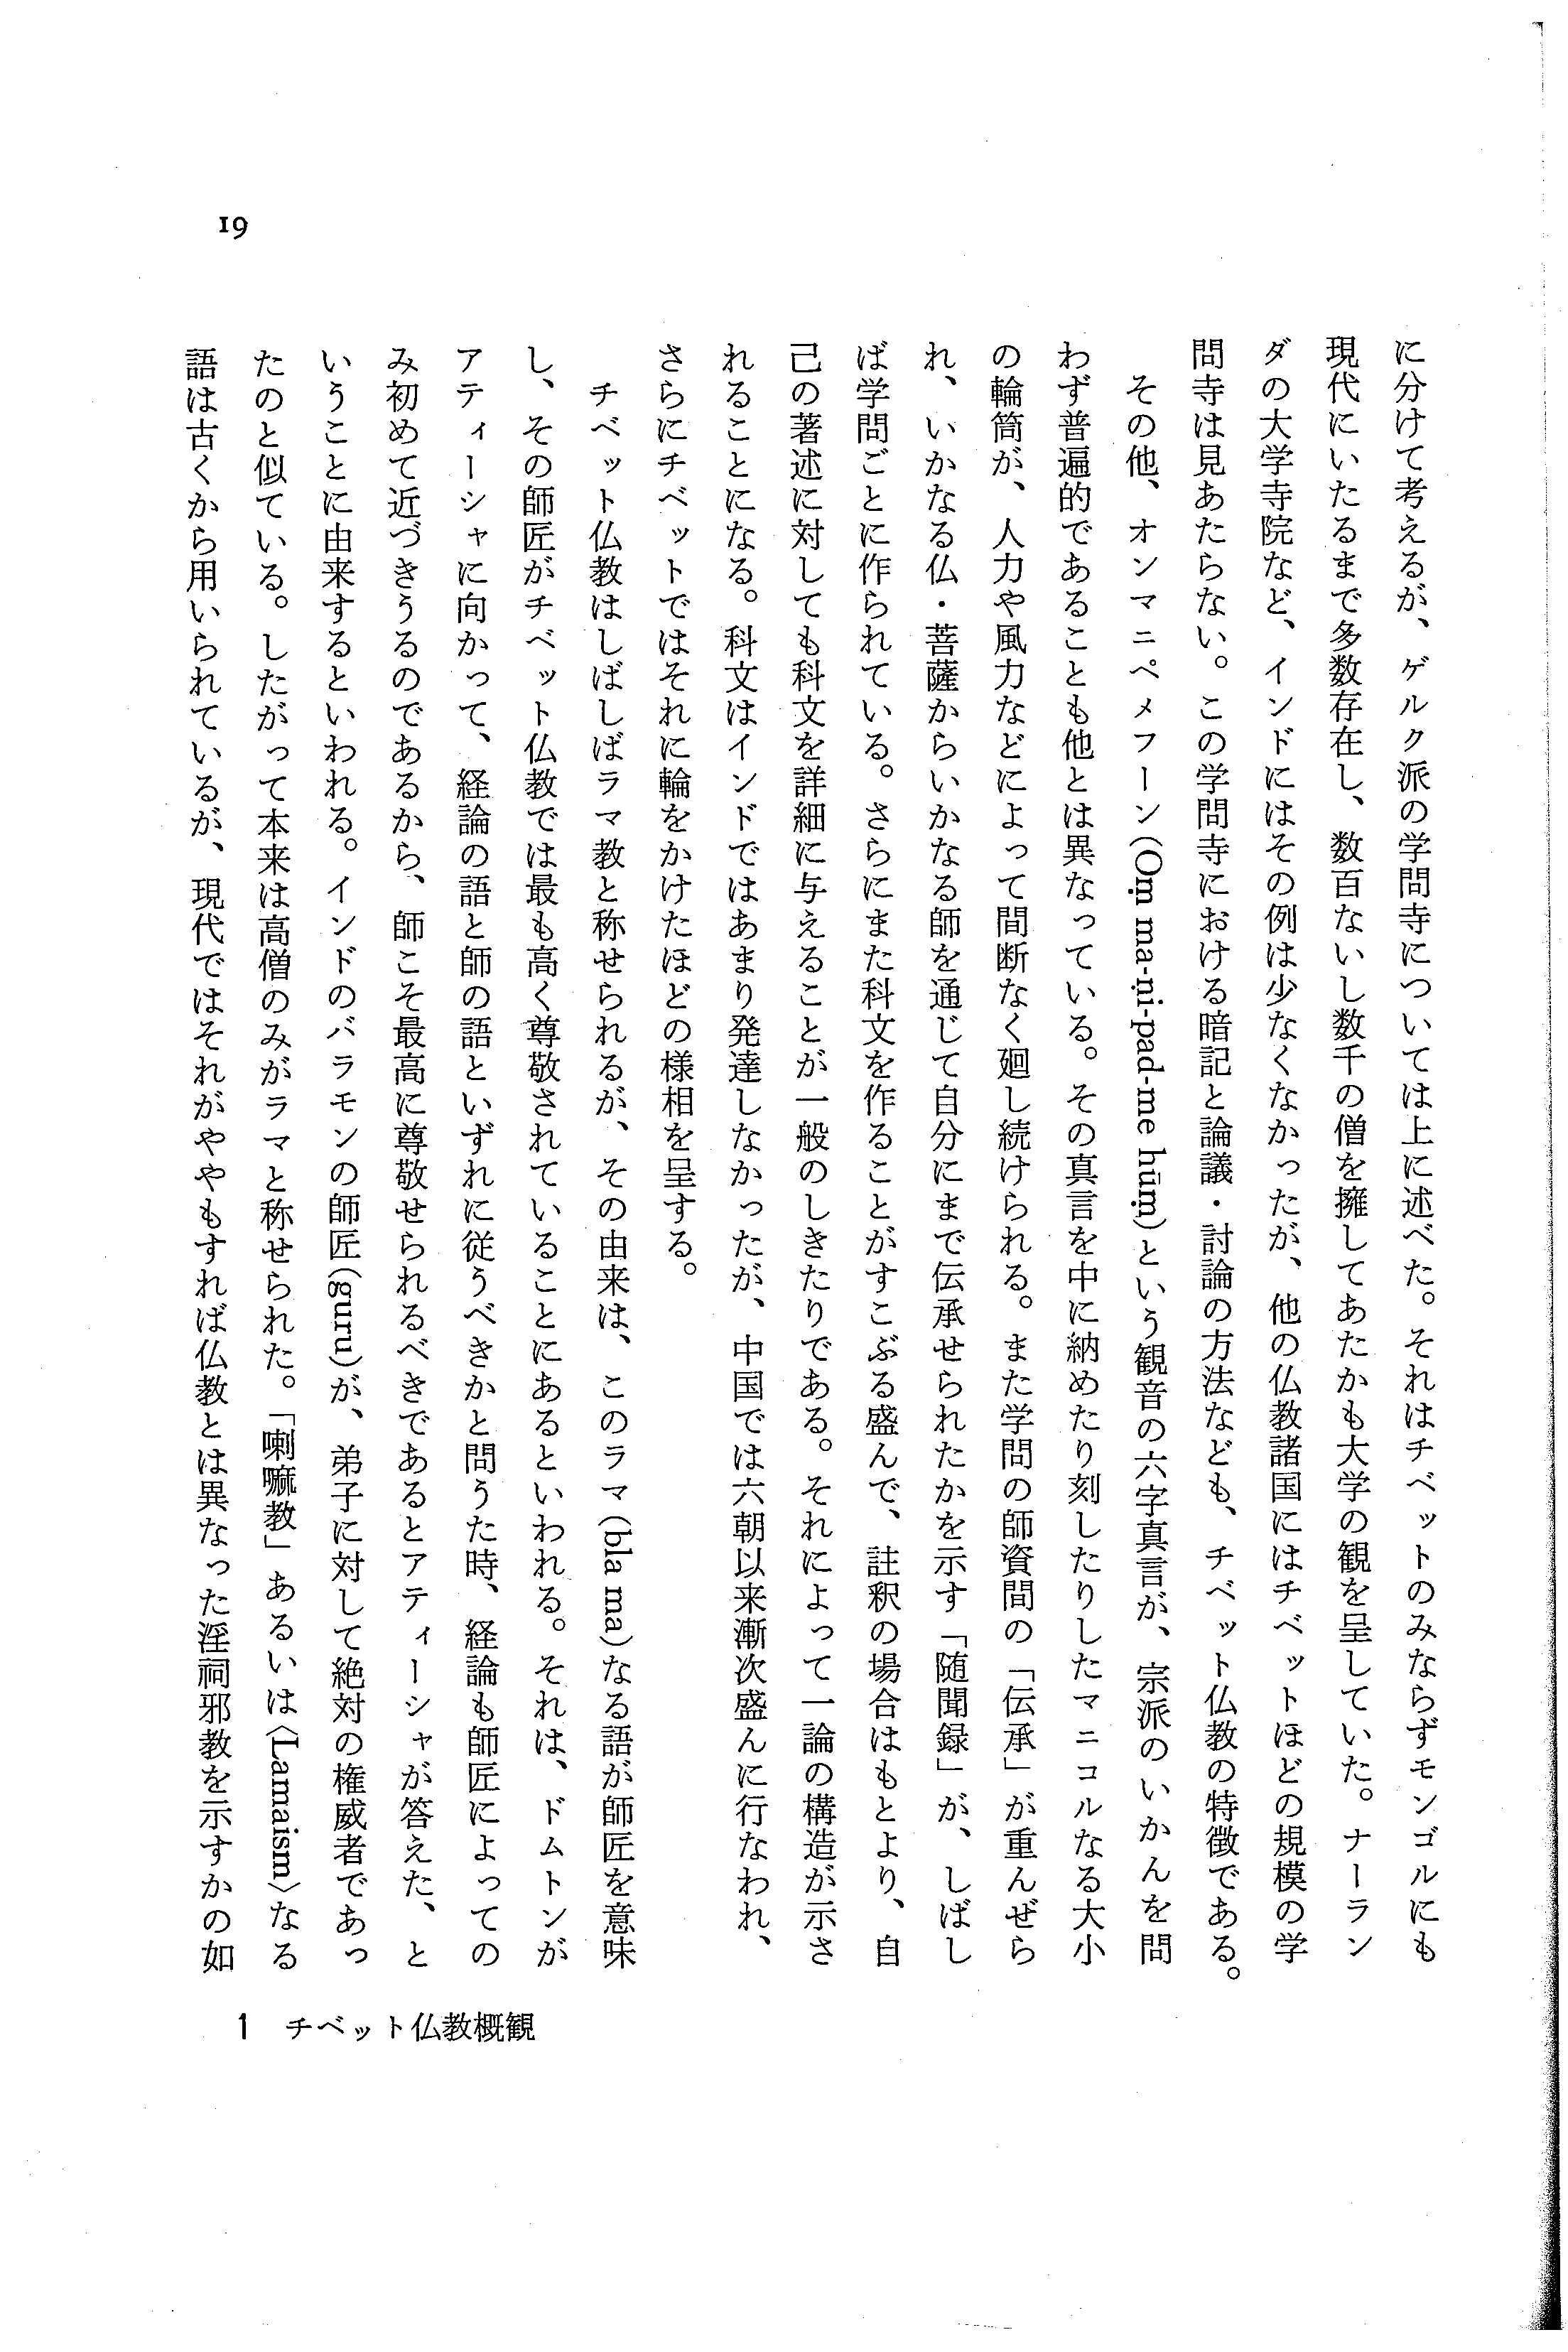 に分けて考えるが、ゲルク派の学問寺については上に述べた。それはチベットのみならずモンゴルにも
現代にいたるまで多数存在し、数百ないし数千の僧を擁してあたかも大学の観を呈していた。ナーラン
ダの大学寺院など、インドにはその例は少なくなかったが、他の仏教諸国にはチベットほどの規模の学
問寺は見あたらない。この学問寺における暗記と論議・討論の方法なども、チベット仏教の特徴である。
その他、オンマニペメフーン(Oṃ ma-ṇi-pad-me hūṃ)という観音の六字真言が、宗派のいかんを問
わず普遍的であることも他とは異なっている。その真言を中に納めたり刻したりしたマニコルなる大小
の輪筒が、人力や風力などによって間断なく廻し続けられる。また学問の師資間の「伝承」が重んぜら
れ、いかなる仏・菩薩からいかなる師を通じて自分にまで伝承せられたかを示す「随聞録」が、しばし
ば学問ごとに作られている。さらにまた科文を作ることがすこぶる盛んで、註釈の場合はもとより、自
己の著述に対しても科文を詳細に与えることが一般のしきたりである。それによって一論の構造が示さ
れることになる。科文はインドではあまり発達しなかったが、中国では六朝以来漸次盛んに行なわれ、
さらにチベットではそれに輪をかけたほどの様相を呈する。
チベット仏教はしばしばラマ教と称せられるが、その由来は、このラマ(bla ma)なる語が師匠を意味
し、その師匠がチベット仏教では最も高く尊敬されていることにあるといわれる。それは、ドムトンが
アティーシャに向かって、経論の語と師の語といずれに従うべきかと問うた時、経論も師匠によっての
み初めて近づきうるのであるから、師こそ最高に尊敬せられるべきであるとアティーシャが答えた、と
いうことに由来するといわれる。インドのバラモンの師匠(guru)が、弟子に対して絶対の権威者であっ
たのと似ている。したがって本来は高僧のみがラマと称せられた。「喇嘛教」あるいは〈Lamaism〉なる
語は古くから用いられているが、現代ではそれがややもすれば仏教とは異なった淫祠邪教を示すかの如
19
1 チベット仏教概観